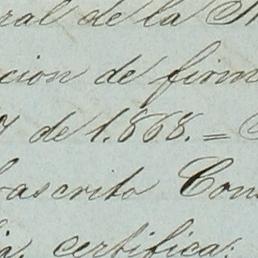 ral de la
cion de firm
de 1.868. =
ascrito Con
certifica: